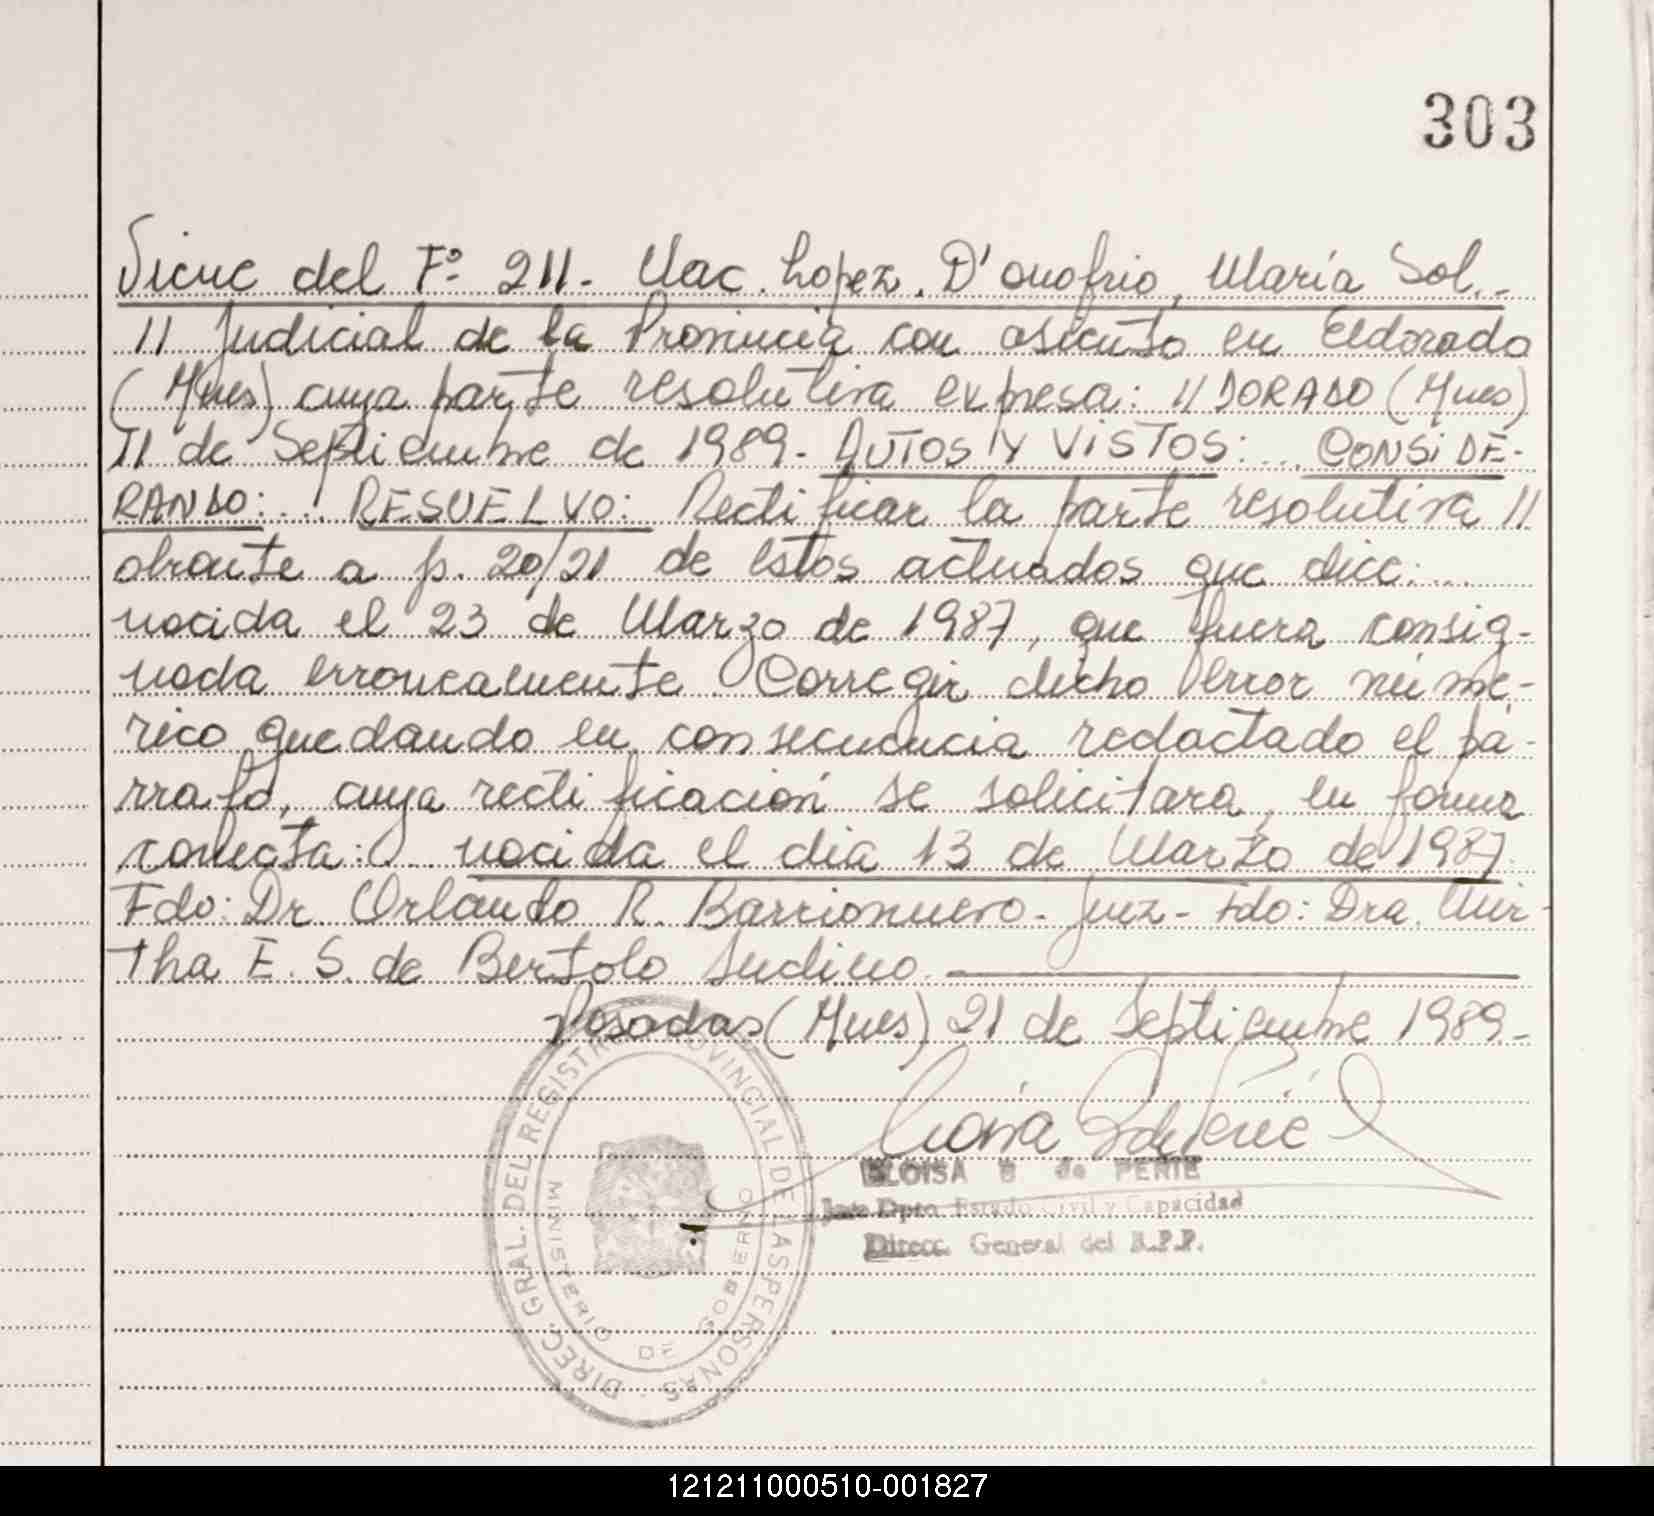 303
Viene del Fº 211.- Nac. Lopez. D'onofrio, María Sol.-
// Judicial de la Provincia con asiento en Eldorado
(Mnes) cuya parte resolutiva expresa: //DORADO (Mnes)
11 de Septiembre de 1989.- AUTOS Y VISTOS:... CONSIDE-
RANDO:... RESUELVO: Rectificar la parte resolutiva //
obrante a fs. 20/21 de estos actuados que dice:...
nacida el 23 de Marzo de 1987, que fuera consig-
nada erroneamente. Corregir dicho error númé-
rico quedando en consecuencia redactado el pá-
rrafo, cuya rectificación se solicitara, en forma
correcta:... nacida el dia 13 de Marzo de 1987.
Fdo: Dr Orlando R. Barrionuevo- Juez- Fdo: Dra. Mir-
tha E. S. de Bertolo Sudino.
Posadas (Mnes) 21 de Septiembre 1989.-
ELOISA de PERIE
Jefe Dpto. Estado Civil y Capacidad
Direcc. General del R.P.P.
DIREC. GRAL. DEL REGISTRO PROVINCIAL DE LAS PERSONAS
MINISTERIO DE GOBIERNO
121211000510-001827